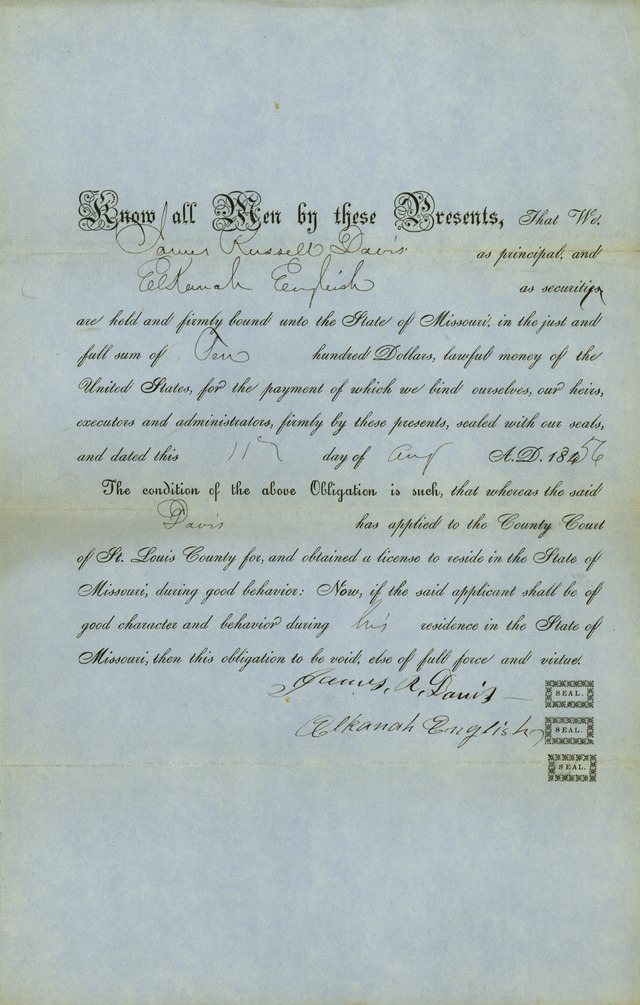 Know all Men by these Presents, That We,
James Russell Davis as principal, and
Elkanah English as security
are held and firmly bound unto the State of Missouri, in the just and
full sum of Ten hundred Dollars, lawful money of the
United States, for the payment of which we bind ourselves, our heirs,
executors and administrators, firmly by these presents, sealed with our seals,
and dated this 11th day of Aug A.D. 1856
The condition of the above Obligation is such, that whereas the said
Davis has applied to the County Court
of St. Louis County for, and obtained a license to reside in the State of
Missouri, during good behavior: Now, if the said applicant shall be of
good character and behavior during his residence in the State of
Missouri, then this obligation to be void, else of full force and virtue.
James, R, Davis — SEAL.
Elkanah English SEAL.
SEAL.